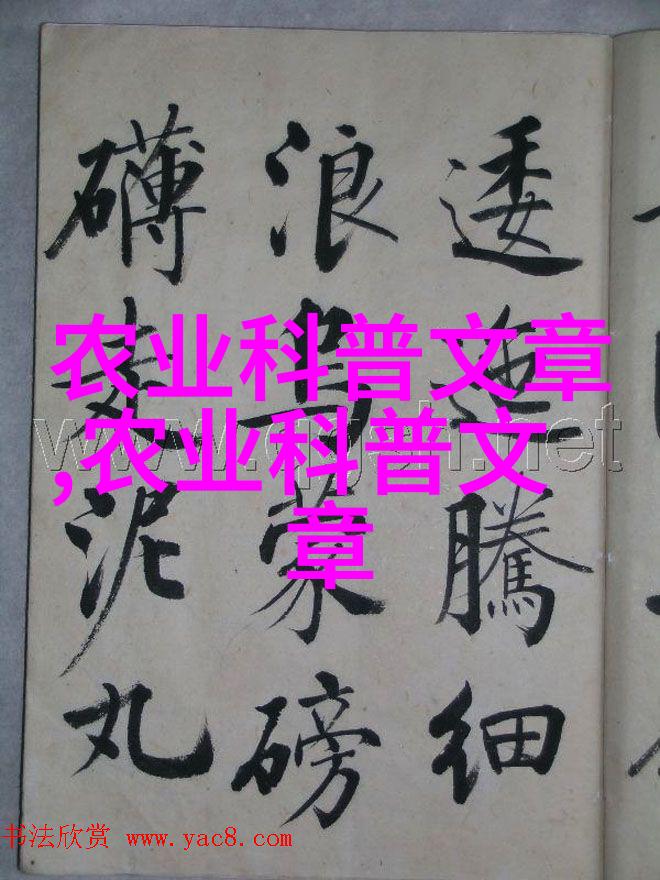 逶迤騰细
浪烏蒙磅
礴走泥丸
农业科普文章
,农业科普文
章
书法欣赏 www.yac8.com